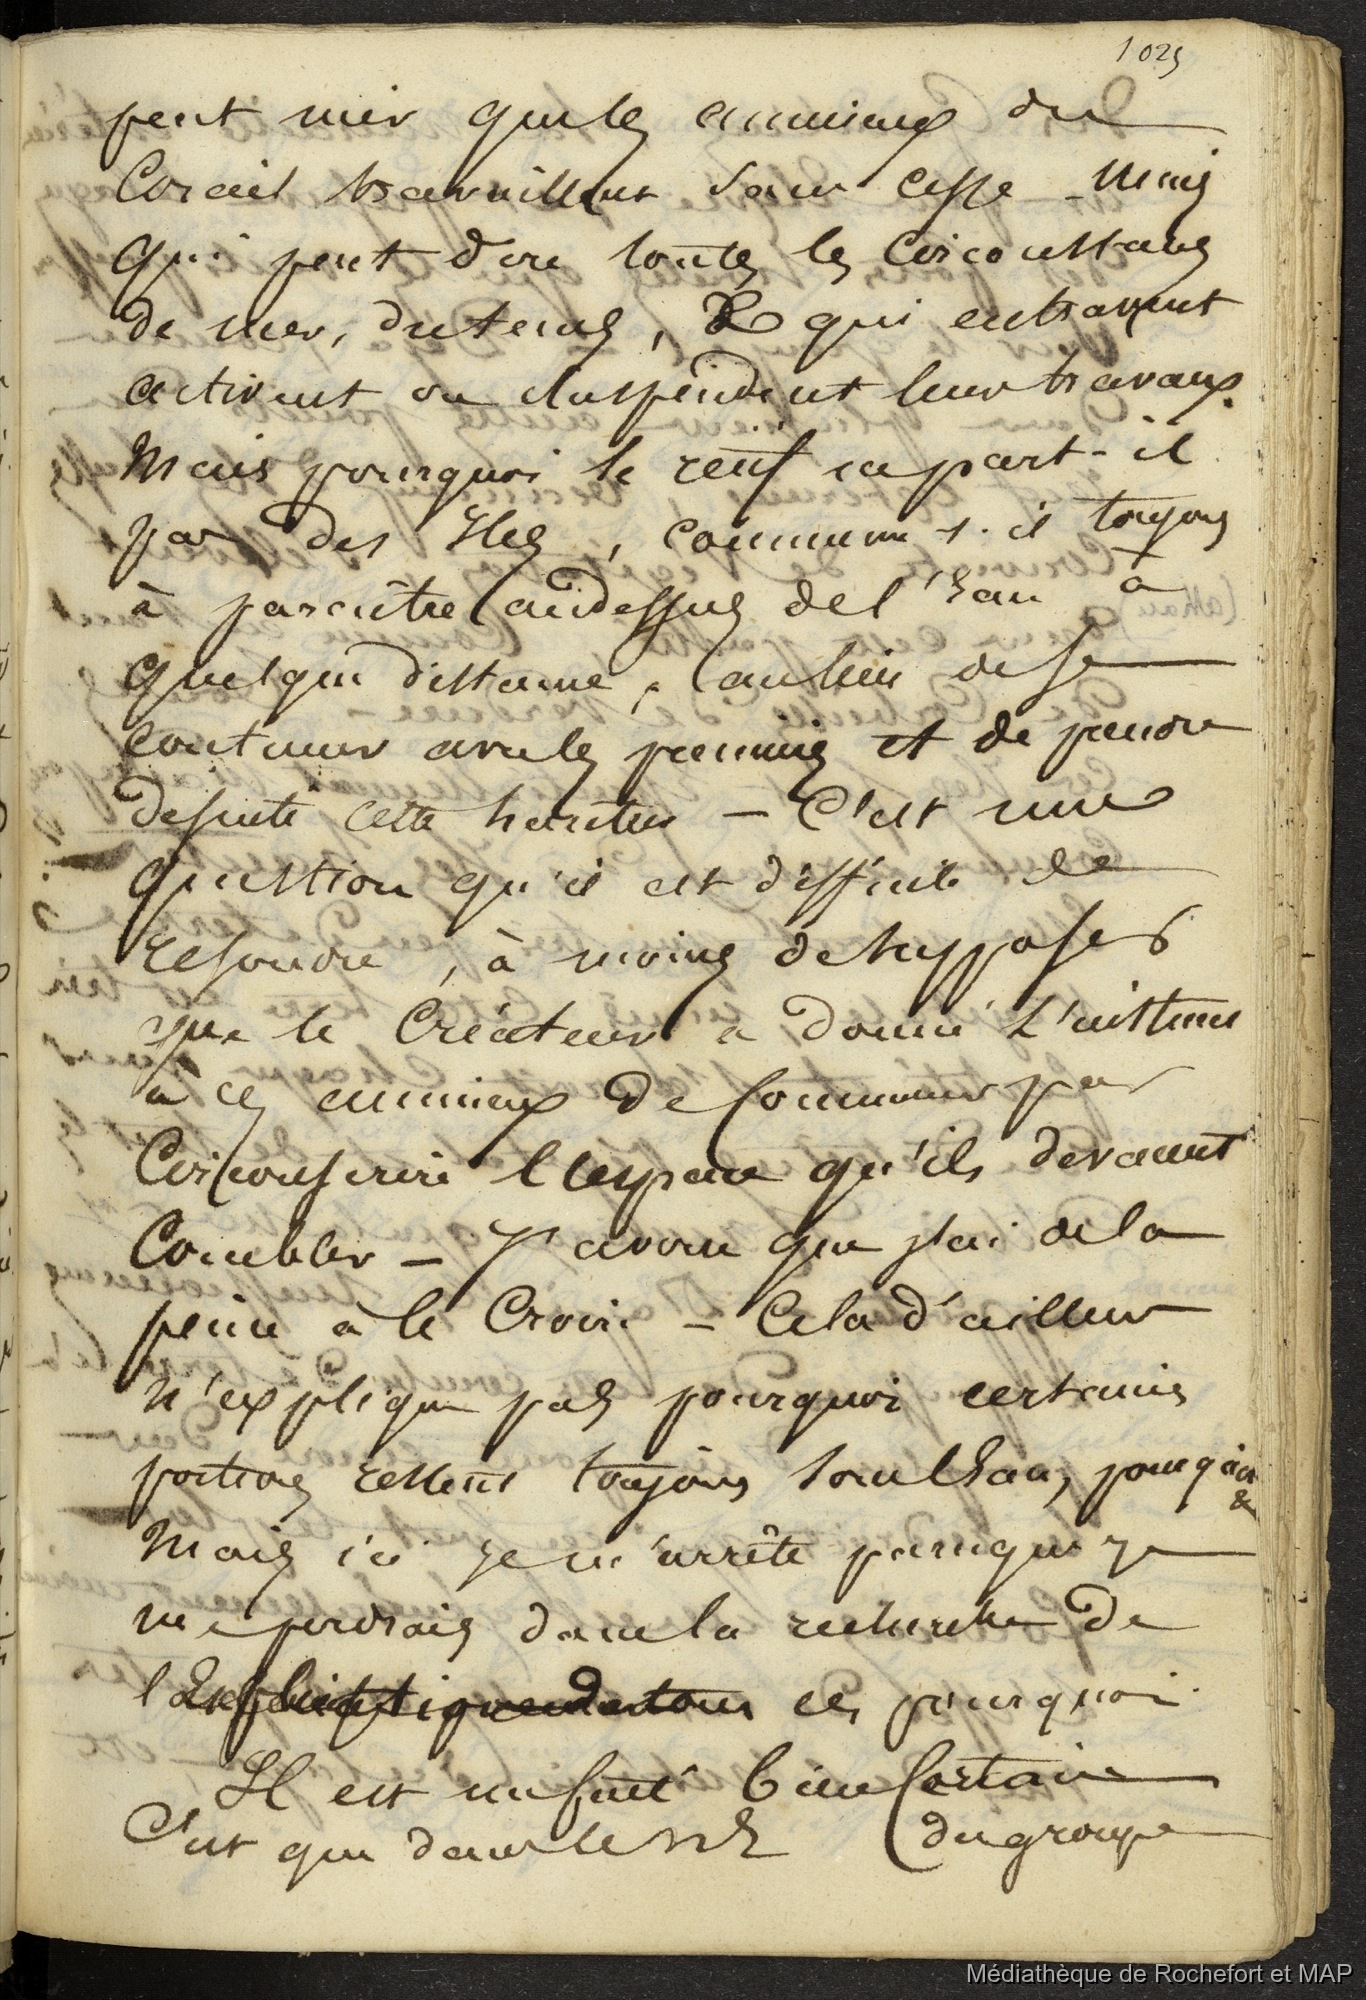 1025
peut nier que les animaux du
Corail travaillent sans cesse - Mais
qui peut dire toutes les circonstances
de mer, du tems, & qui entravent
activent ou suspendent leur travaux.
Mais pourquoi le recif part-il
par des Iles, commence t-il toujours
à paraître au dessus de l'Eau à
quelque distance, au lieu de se
continuer avec les premiers et de prendre
de suite cette hauteur - C'est une
question qu'il est difficile de
resoudre, à moins de supposer
que le Créateur a donné L'instinct
à ces animaux de commencer par
Circonscrire l'espace qu'ils devaient
Combler - J'avoue que j'ai de la
peine à le Croire - Cela d'ailleurs
n'explique pas pourquoi certaines
portions restent toujours sous l'Eau, pourquoi
&
Mais ici je m'arrête parceque je
me perdrais dans la recherche de
ces pourquoi.
Il est un fait bien Certain
C'est que dans le N E du groupe
Médiathèque de Rochefort et MAP